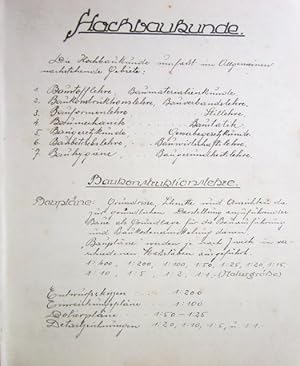 Hochbaukunde.
Die Hochbaukunde umfaßt im Allgemeinen
nachstehende Gebiete:
1. Baustofflehre, Baumaterialienkunde
2. Baukonstruktionslehre, Bauverbandslehre
3. Bauformenlehre, Stillehre
4. Baumechanik, Baustatik
5. Baugesetzkunde, Gewerbegesetzkunde
6. Baubetriebslehre, Bauwirtschaftslehre
7. Bauhygiene, Baugesundheitslehre
Baukonstruktionslehre.
Baupläne: Grundrisse, Schnitte und Ansichten die
zur Darstellung auszuführender
Bauten als Grundlage
und Baukosten dienen.
Baupläne werden je nach Zweck in
Maßstäben ausgeführt.
1:400, 1:200, 1:100, 1:50, 1:25, 1:20, 1:15,
1:10, 1:5, 1:2, 1:1 (Naturgröße)
Entwurfskizzen 1:200
Einreichungspläne 1:100
Polierpläne 1:50 - 1:25
Detailzeichnungen 1:20, 1:10, 1:5, u. 1:1.